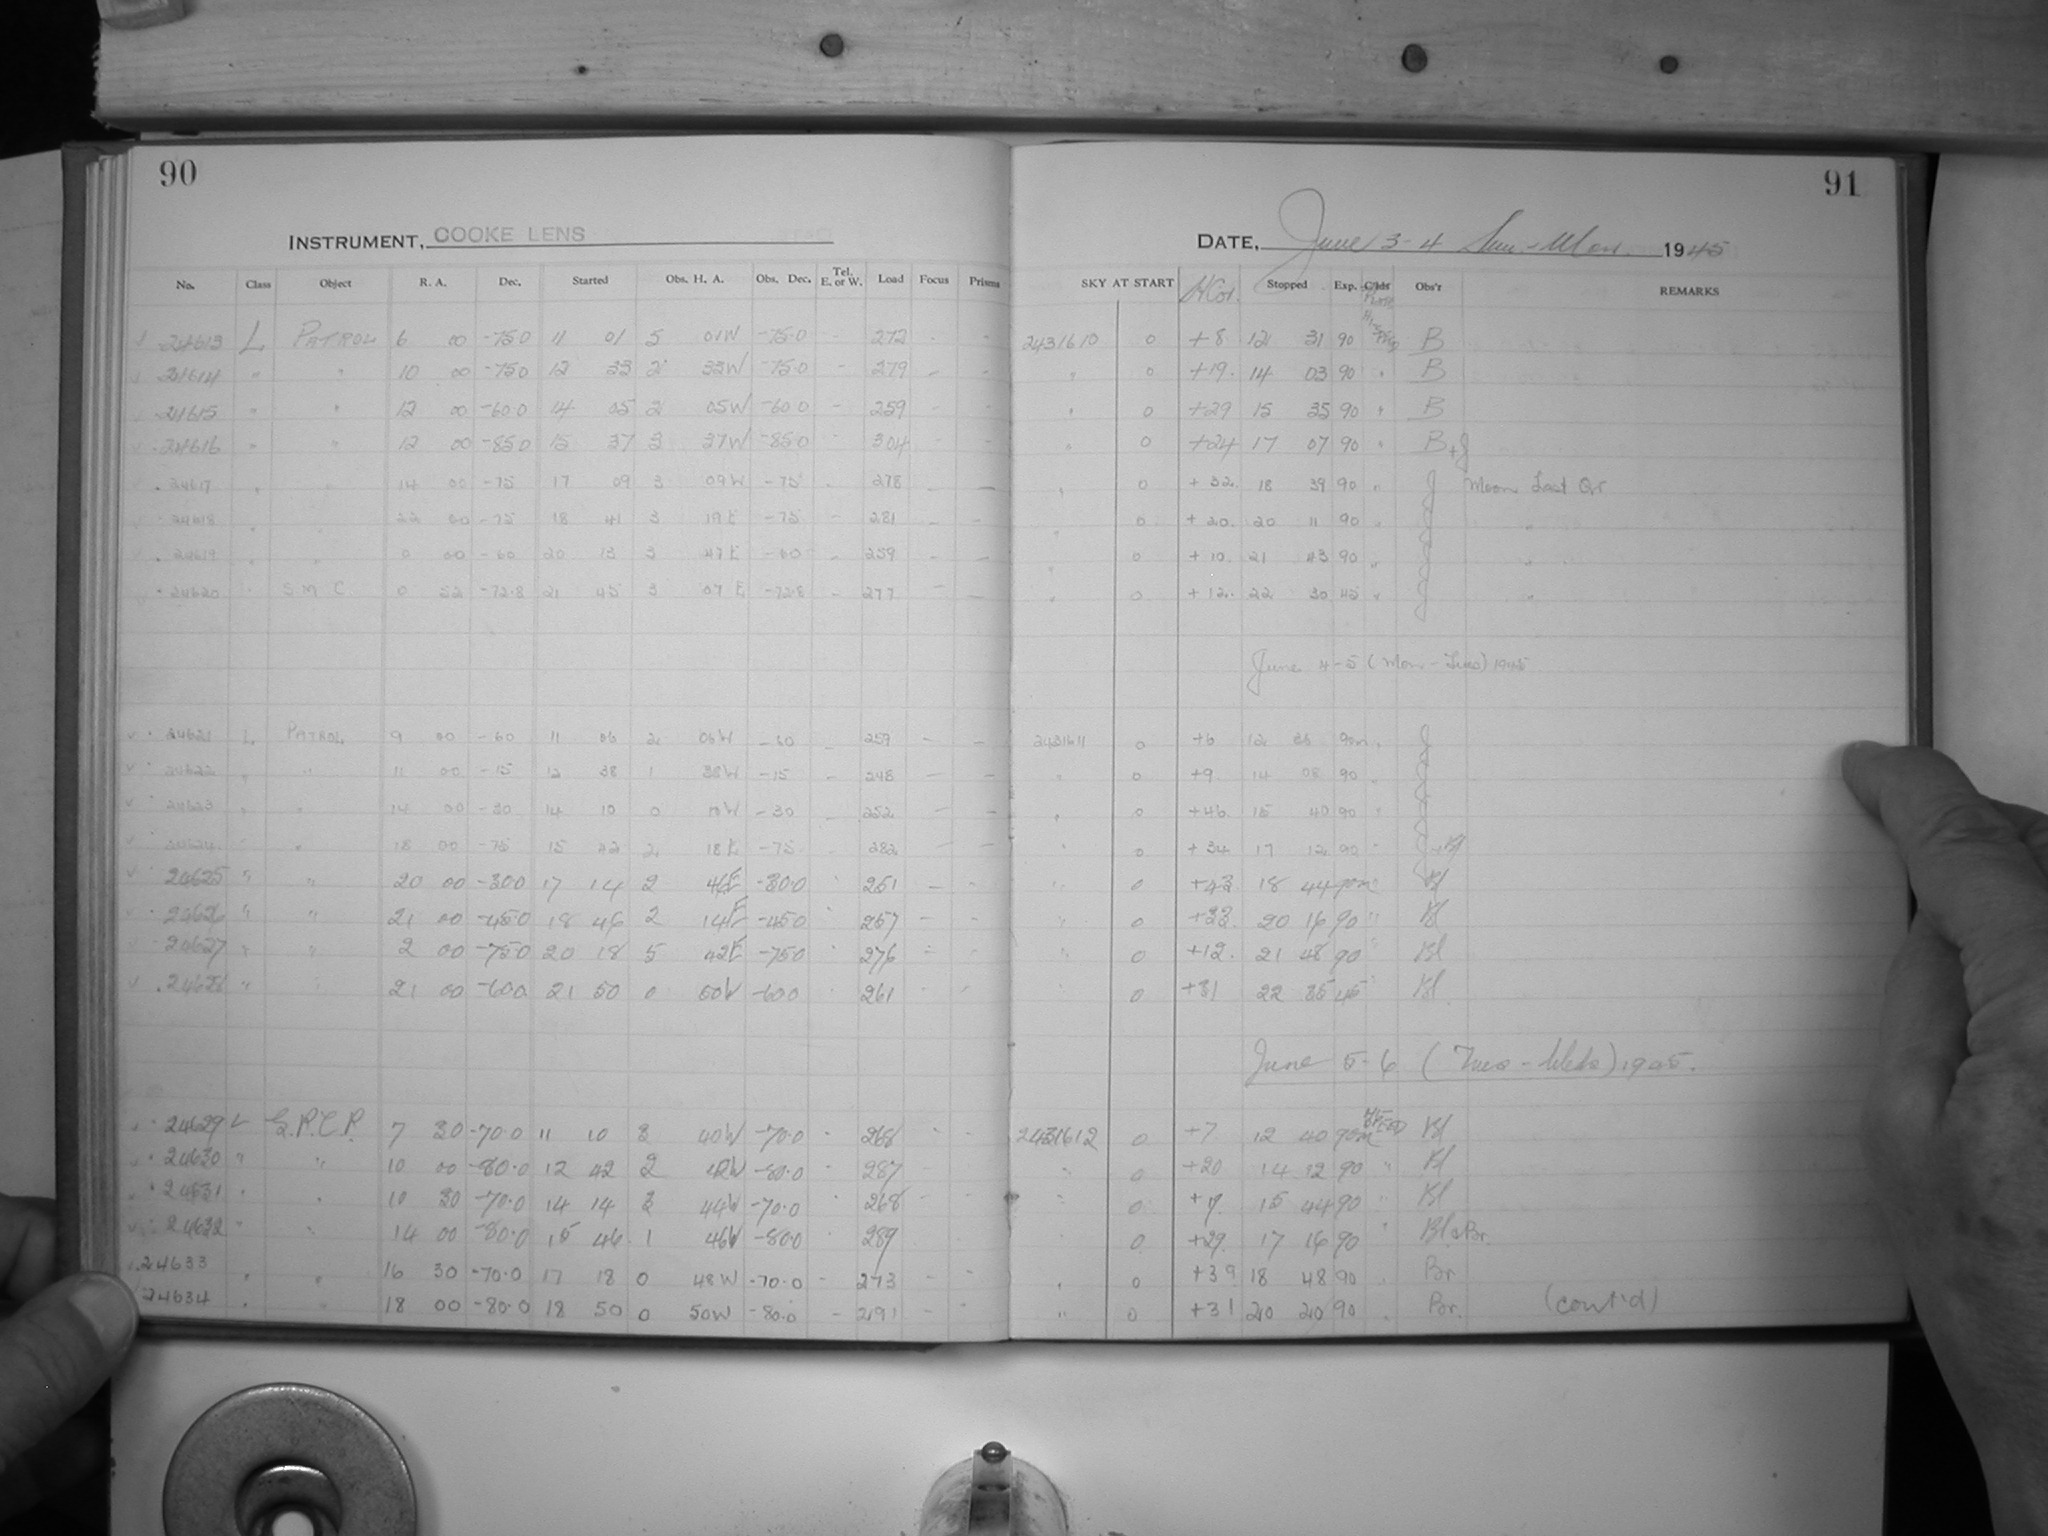 90
INSTRUMENT, COOKE LENS
No. Class Object R. A. Dec. Started Obs. H. A. Obs. Dec. Tel. E. or W. Load Focus Prisms
24613 L PATROL 6 00 -75.0 11 01 5 01W -75.0 - 272 - -
24614 " " 10 00 -75.0 12 33 2 33W -75.0 - 279 - -
24615 " " 12 00 -60.0 14 05 2 05W -60.0 - 259 - -
24616 " " 12 00 -85.0 15 37 3 37W -85.0 - 304 - -
24617 " " 14 00 -75 17 09 3 09W -75 - 278 - -
24618 " " 22 00 -75 18 41 3 19E -75 - 281 - -
24619 " " 0 00 -60 20 13 3 47E -60 - 259 - -
24620 " S M C 0 52 -72.8 21 45 3 07E -72.8 - 277 - -
24621 L PATROL 9 00 -60 11 06 2 06W -60 - 259 - -
24622 " " 11 00 -15 12 38 1 38W -15 - 248 - -
24623 " " 14 00 -30 14 10 0 10W -30 - 252 - -
24624 " " 18 00 -75 15 42 2 18E -75 - 282 - -
24625 " " 20 00 -30.0 17 14 2 46E -30.0 " 251 - -
24626 " " 21 00 -45.0 18 46 2 14E -45.0 " 257 - -
24627 " " 2 00 -75.0 20 18 5 42E -75.0 " 276 - -
24628 " " 21 00 -60.0 21 50 0 50W -60.0 " 261 - -
24629 L S.P.C.P. 7 30 -70.0 11 10 3 40W -70.0 - 268 - -
24630 " " 10 00 -80.0 12 42 2 42W -80.0 - 287 - -
24631 " " 10 30 -70.0 14 14 3 44W -70.0 - 268 - -
24632 " " 14 00 -80.0 15 46 1 46W -80.0 - 289 - -
24633 " " 16 30 -70.0 17 18 0 48W -70.0 - 273 - -
24634 " " 18 00 -80.0 18 50 0 50W -80.0 - 291 - -
91
DATE, June 3-4 Sun.-Mon. 1945
SKY AT START H Cor. Stopped Exp. Obs'r REMARKS
2431610 0 +8 12 31 90 B
" 0 +19 14 03 90 " B
" 0 +29 15 35 90 " B
" 0 +24 17 07 90 " B+J
" 0 +32 18 39 90 " J Moon Last Qr
" 0 +20 20 11 90 " J "
" 0 +10 21 43 90 " J "
" 0 +12 22 30 45 " J "
June 4-5 (Mon-Tues) 1945
2431611 0 +6 12 36 90m " J
" 0 +9 14 08 90 " J
" 0 +46 15 40 90 " J
" 0 +34 17 12 90 " J-Bl
" 0 +43 18 44 90m " Bl
" 0 +33 20 16 90 " Bl
" 0 +12 21 48 90 " Bl
" 0 +31 22 35 45 " Bl
June 5-6 (Tues-Weds) 1945.
2431612 0 +7 12 40 90m Bl
" 0 +20 14 12 90 " Bl
" 0 +19 15 44 90 " Bl
" 0 +29 17 16 90 " Bl & Br.
" 0 +39 18 48 90 " Br
" 0 +31 20 20 90 " Br. (cont'd)